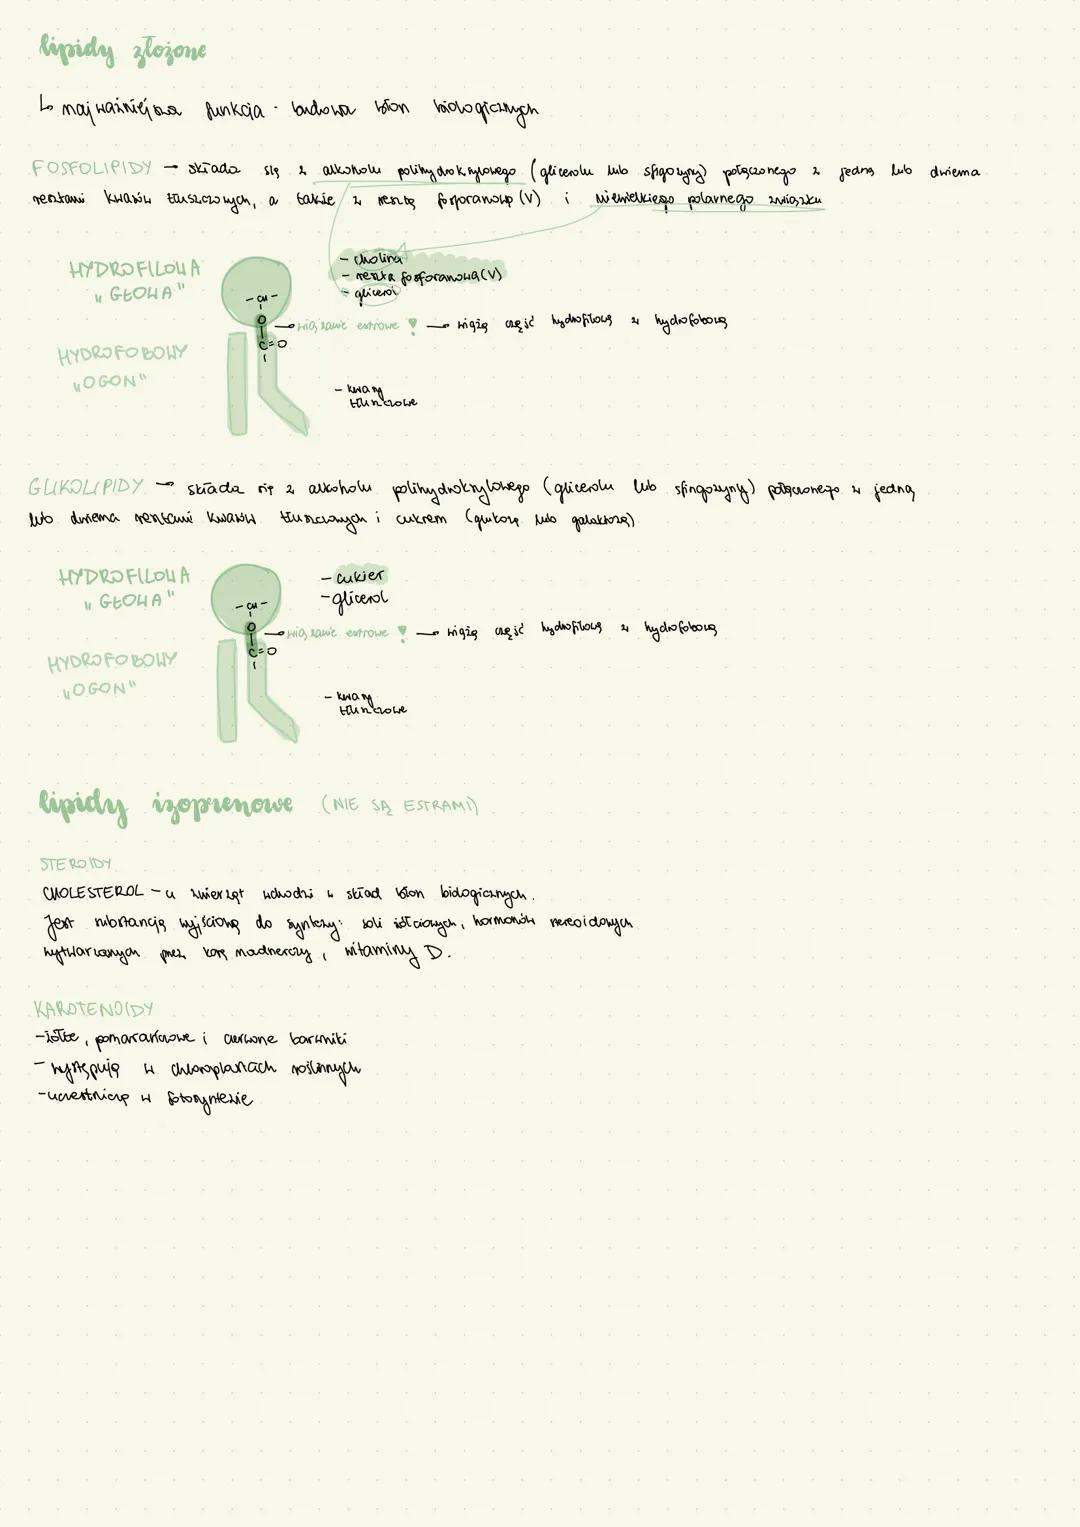 lipidy złożone
↳ najważniejsza funkcja - budowa błon biologicznych
FOSFOLIPIDY → składa się z alkoholu polihydroksylowego (glicerolu lub sfigozyny) połączonego z jedną lub dwiema
resztami kwasów tłuszczowych, a także z resztą fosforanową (V) i niewielkiego polarnego związku
HYDROFILOWA
"GŁOWA"
- cholina
- reszta fosforanowa (V)
- glicerol
- CH -
O
→ wiązanie estrowe ! → wiążą część hydrofilową z hydrofobową
C=O
HYDROFOBOWY
"OGON"
- kwasy
tłuszczowe
GLIKOLIPIDY → składa się z alkoholu polihydroksylowego (glicerolu lub sfingozyny) połączonego z jedną
lub dwiema resztami kwasów tłuszczowych i cukrem (glukozą lub galaktozą)
HYDROFILOWA
"GŁOWA"
- cukier
- glicerol
- CH -
O
→ wiązanie estrowe ! → wiążą część hydrofilową z hydrofobową
C=O
HYDROFOBOWY
"OGON"
- kwasy
tłuszczowe
lipidy izoprenowe (NIE SĄ ESTRAMI)
STEROIDY
CHOLESTEROL - u zwierząt wchodzi w skład błon biologicznych.
Jest substancją wyjściową do syntezy: soli żółciowych, hormonów steroidowych
wytwarzanych przez korę nadnerczy, witaminy D.
KAROTENOIDY
- żółte, pomarańczowe i czerwone barwniki
- występują w chloroplastach roślinnych
- uczestniczą w fotosyntezie